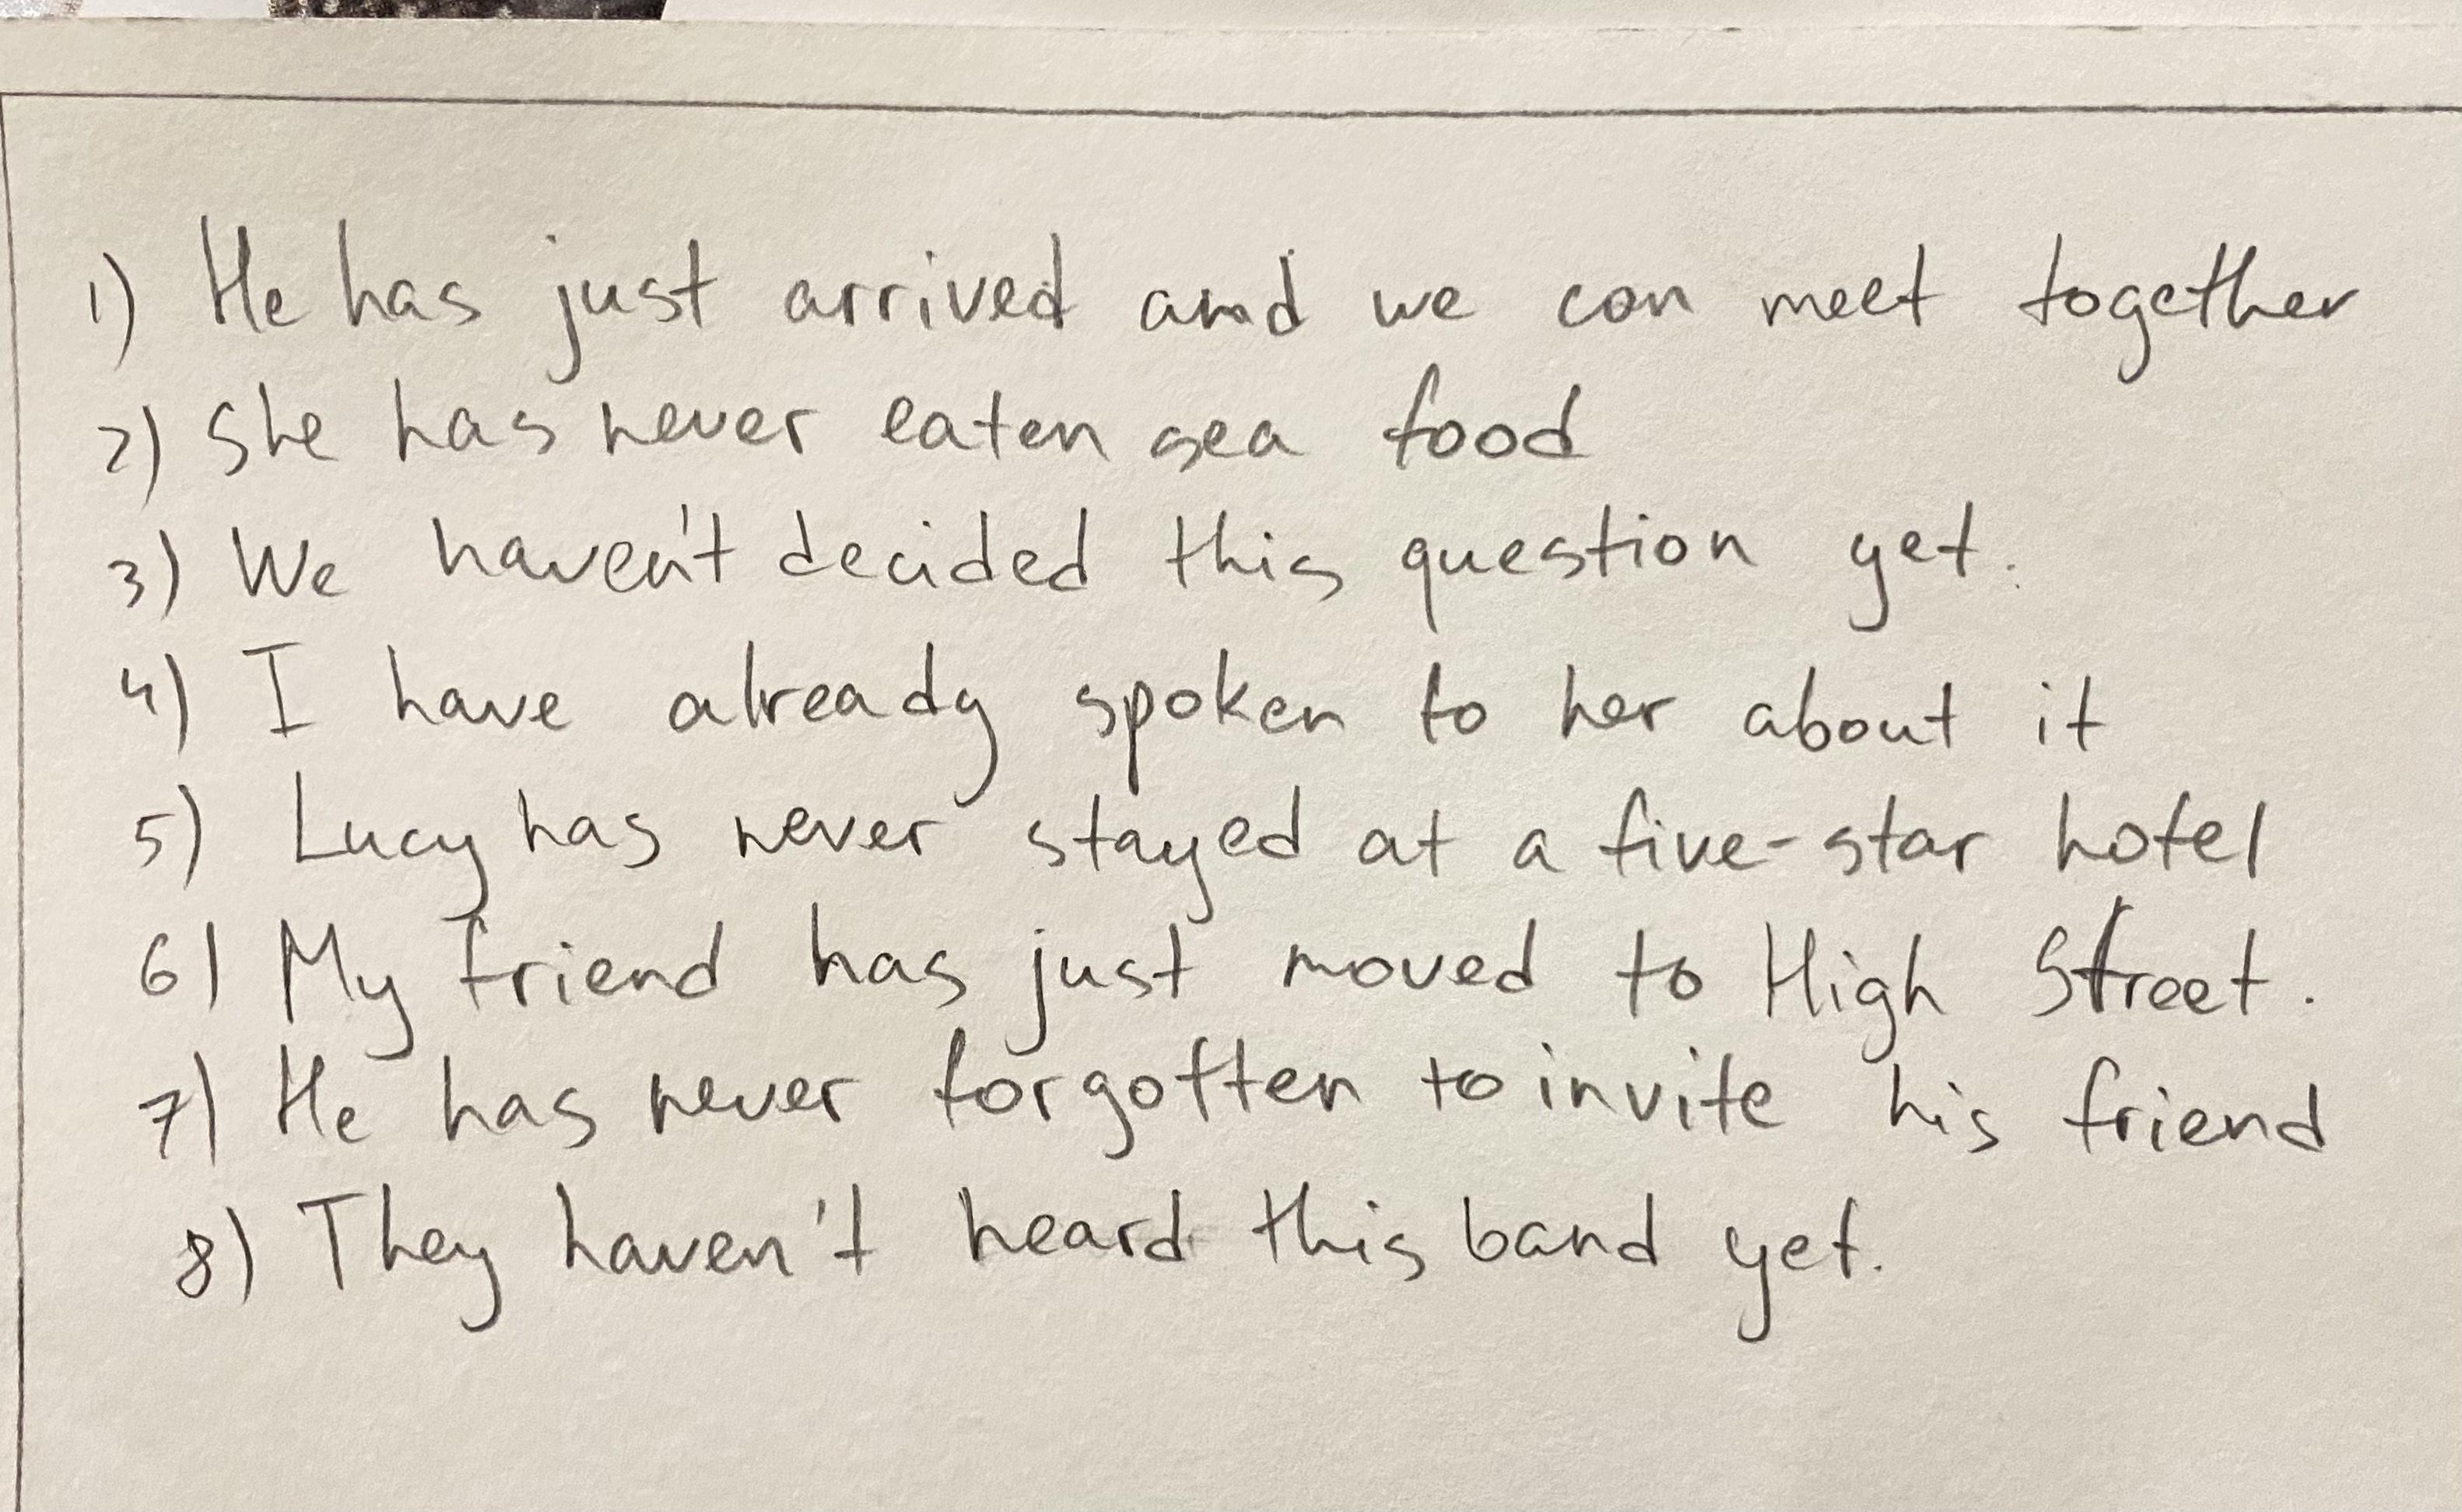 1) He has just arrived and we can meet together
2) She has never eaten sea food
3) We haven't decided this question yet.
4) I have already spoken to her about it
5) Lucy has never stayed at a five-star hotel
6) My friend has just moved to High Street.
7) He has never forgotten to invite his friend
8) They haven't heard this band yet.